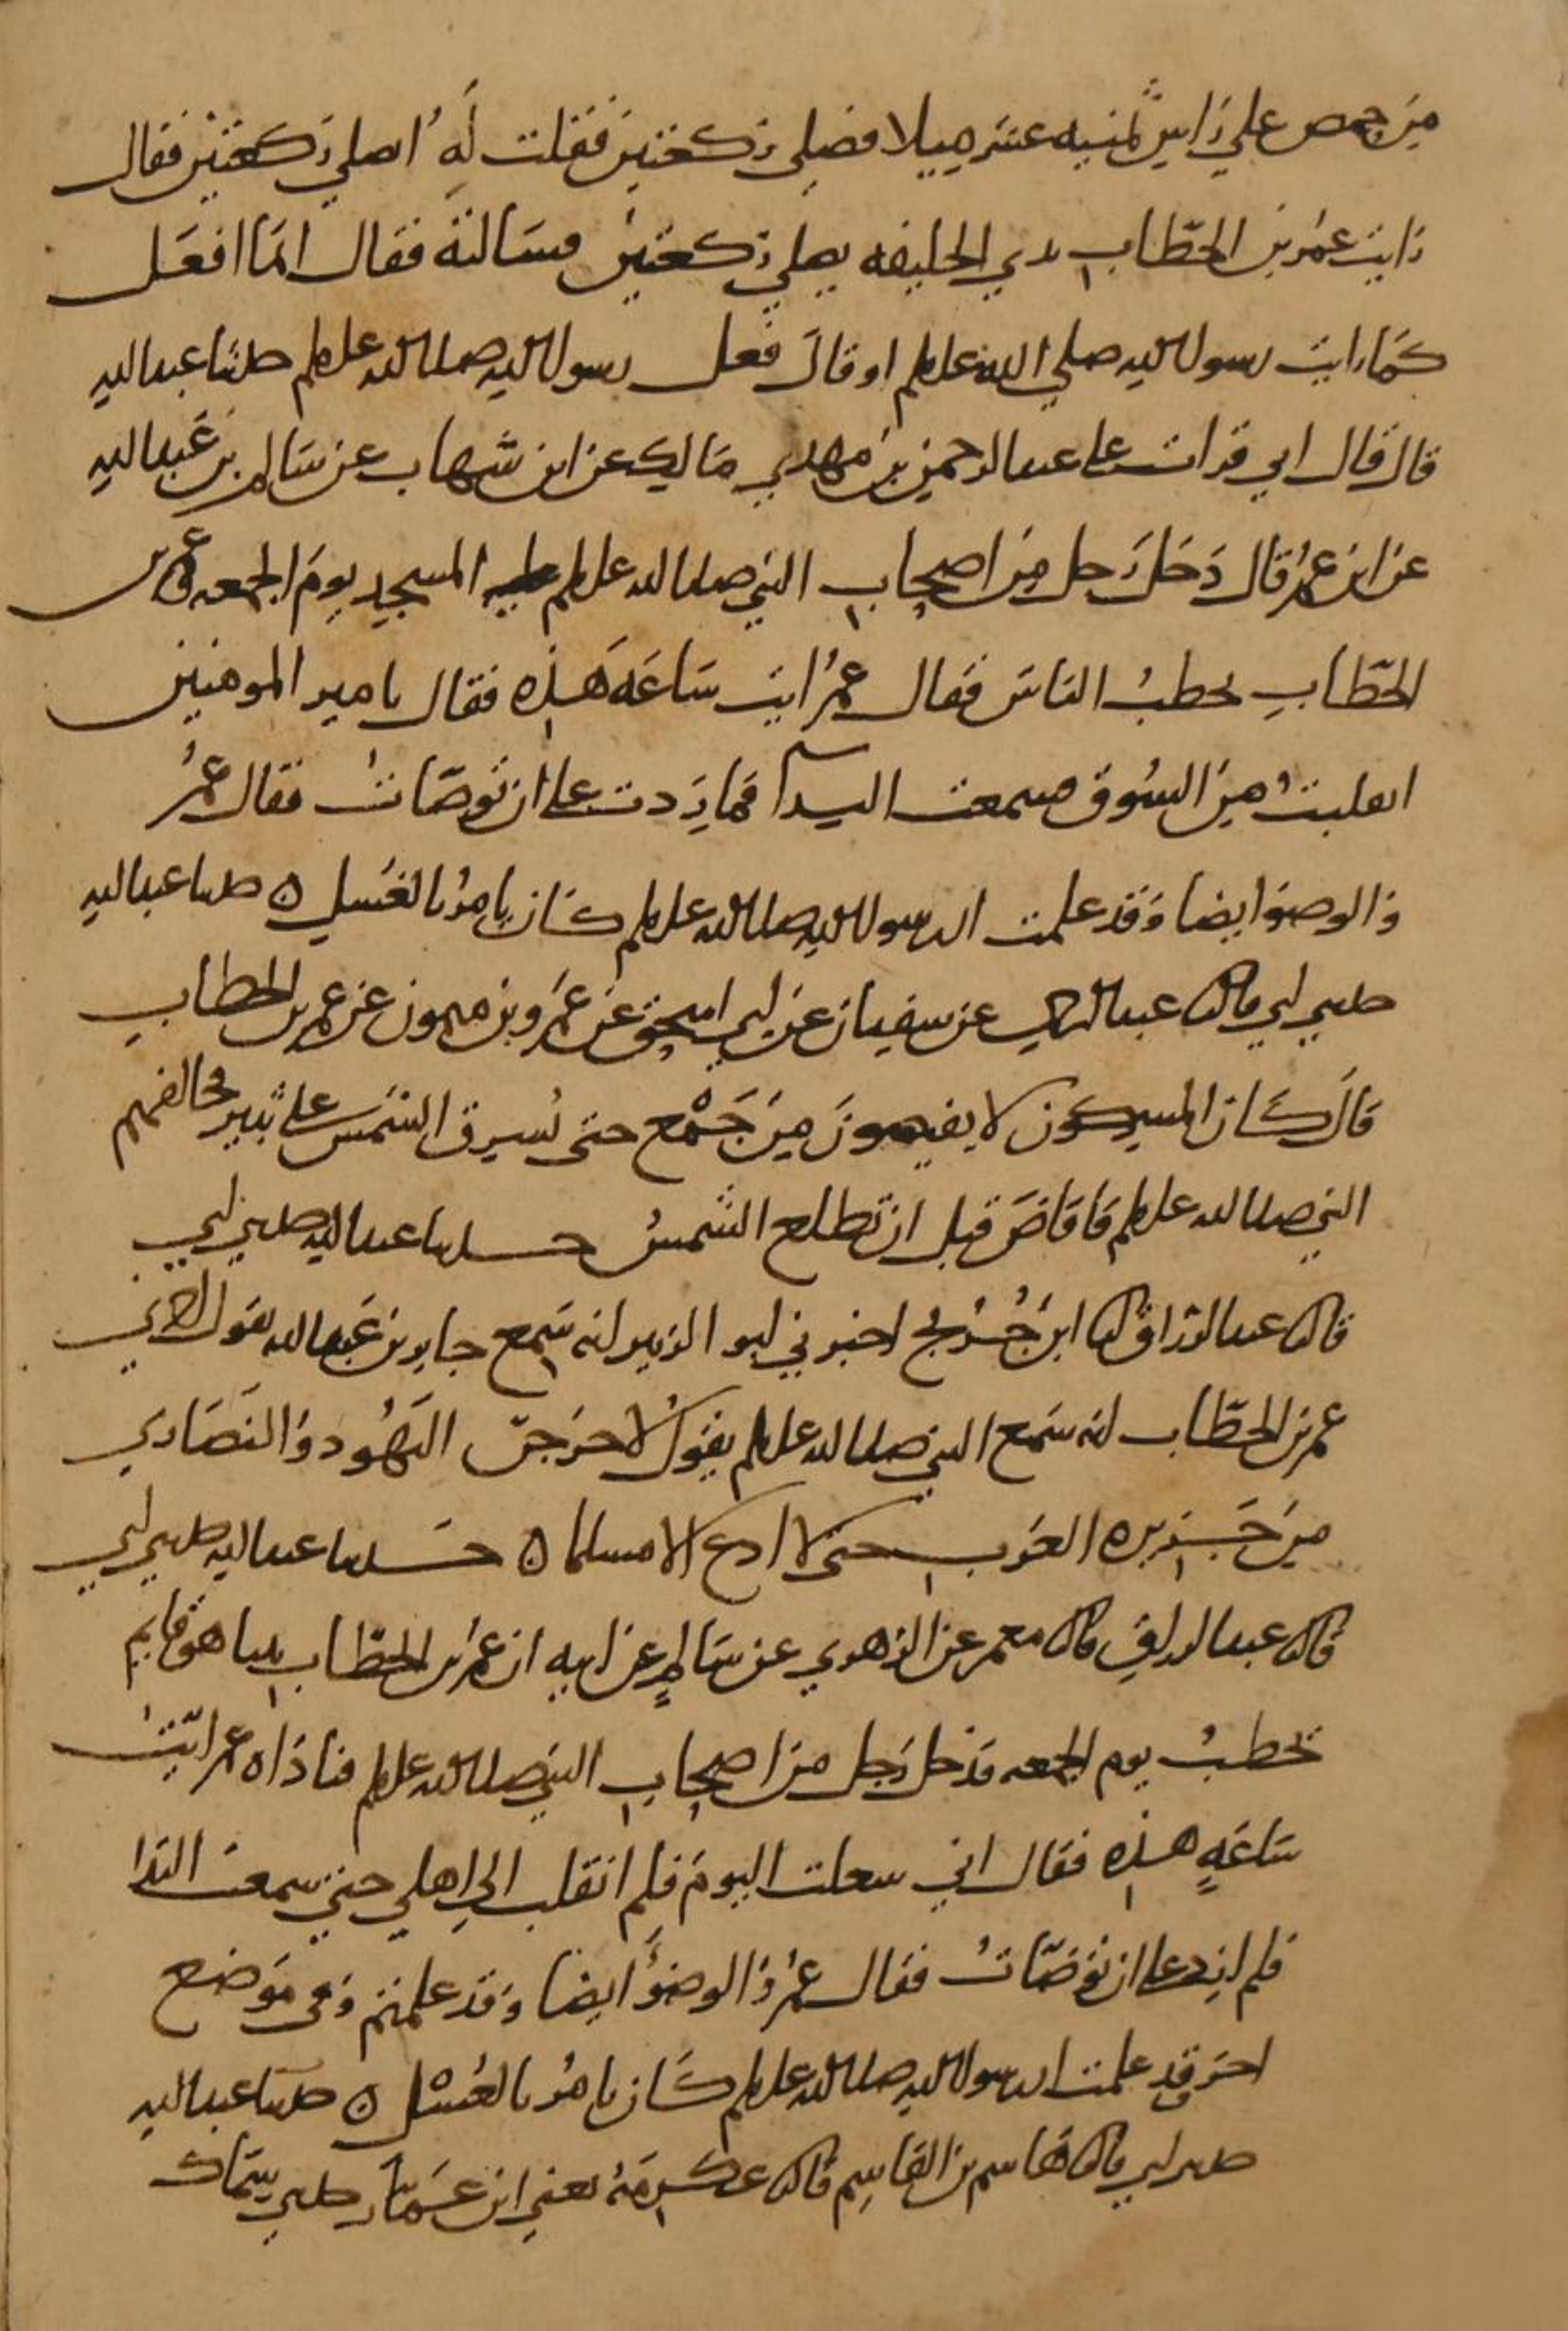 من حمص على راس ثمنيه عشر ميلا فصلى ركعتين فقلت له اصلي ركعتين فقال
رايت عمر بن الخطاب بذي الحليفه يصلي ركعتين فسالته فقال انما افعل
كما رايت رسول الله صلي الله عليه وسلم او قال فعل رسول الله صلى الله عليه وسلم حدثنا عبد الله
قال قال ابي قرات على عبد الرحمن بن مهدي مالك عن ابن شهاب عن سالم بن عبد الله
عن ابن عمر قال دخل رجل من اصحاب النبي صلى الله عليه وسلم المسجد يوم الجمعه وعمر بن
الخطاب يخطب الناس فقال عمر ايت ساعه هذه فقال يا مير المومنين
انقلبت من السوق فسمعت النداء فما زدت على ان توضات فقال عمر
والوضو ايضا وقد علمت ان رسول الله صلى الله عليه وسلم كان يامر بالغسل ه حدثنا عبد الله
حدثني ابي قال ثنا عبد الرحمن عن سفيان عن ابي اسحق عن عمرو بن ميمون عن عمر بن الخطاب
قال كان المشركون لا يفيضون من جمع حتى تشرق الشمس على ثبير فخالفهم
النبي صلى الله عليه وسلم فافاض قبل ان تطلع الشمس حدثنا عبد الله حدثني ابي
قال ثنا عبد الرزاق انا ابن جريج اخبرني ابو الزبير انه سمع جابر بن عبد الله يقول اخبرني
عمر بن الخطاب انه سمع النبي صلى الله عليه وسلم يقول لاخرجن اليهود والنصاري
من جزيره العرب حتى لا ادع الا مسلما ه حدثنا عبد الله حدثني ابي
قال ثنا عبد الرزاق قال ثنا معمر عن الزهري عن سالم عن ابيه ان عمر بن الخطاب بينا هو قايم
يخطب يوم الجمعه فدخل رجل من اصحاب النبي صلى الله عليه وسلم فناداه عمر ايت
ساعه هذه فقال اني شغلت اليوم فلم انقلب الي اهلي حتي سمعت الندا
فلم ازد على ان توضات فقال عمر والوضو ايضا وقد علمتم وفي موضع
اخر وقد علمت ان رسول الله صلى الله عليه وسلم كان يامر بالغسل ه حدثنا عبد الله
حدثني ابي قال ثنا هاشم بن القاسم قال ثنا عكرمه يعني ابن عمار حدثني سماك